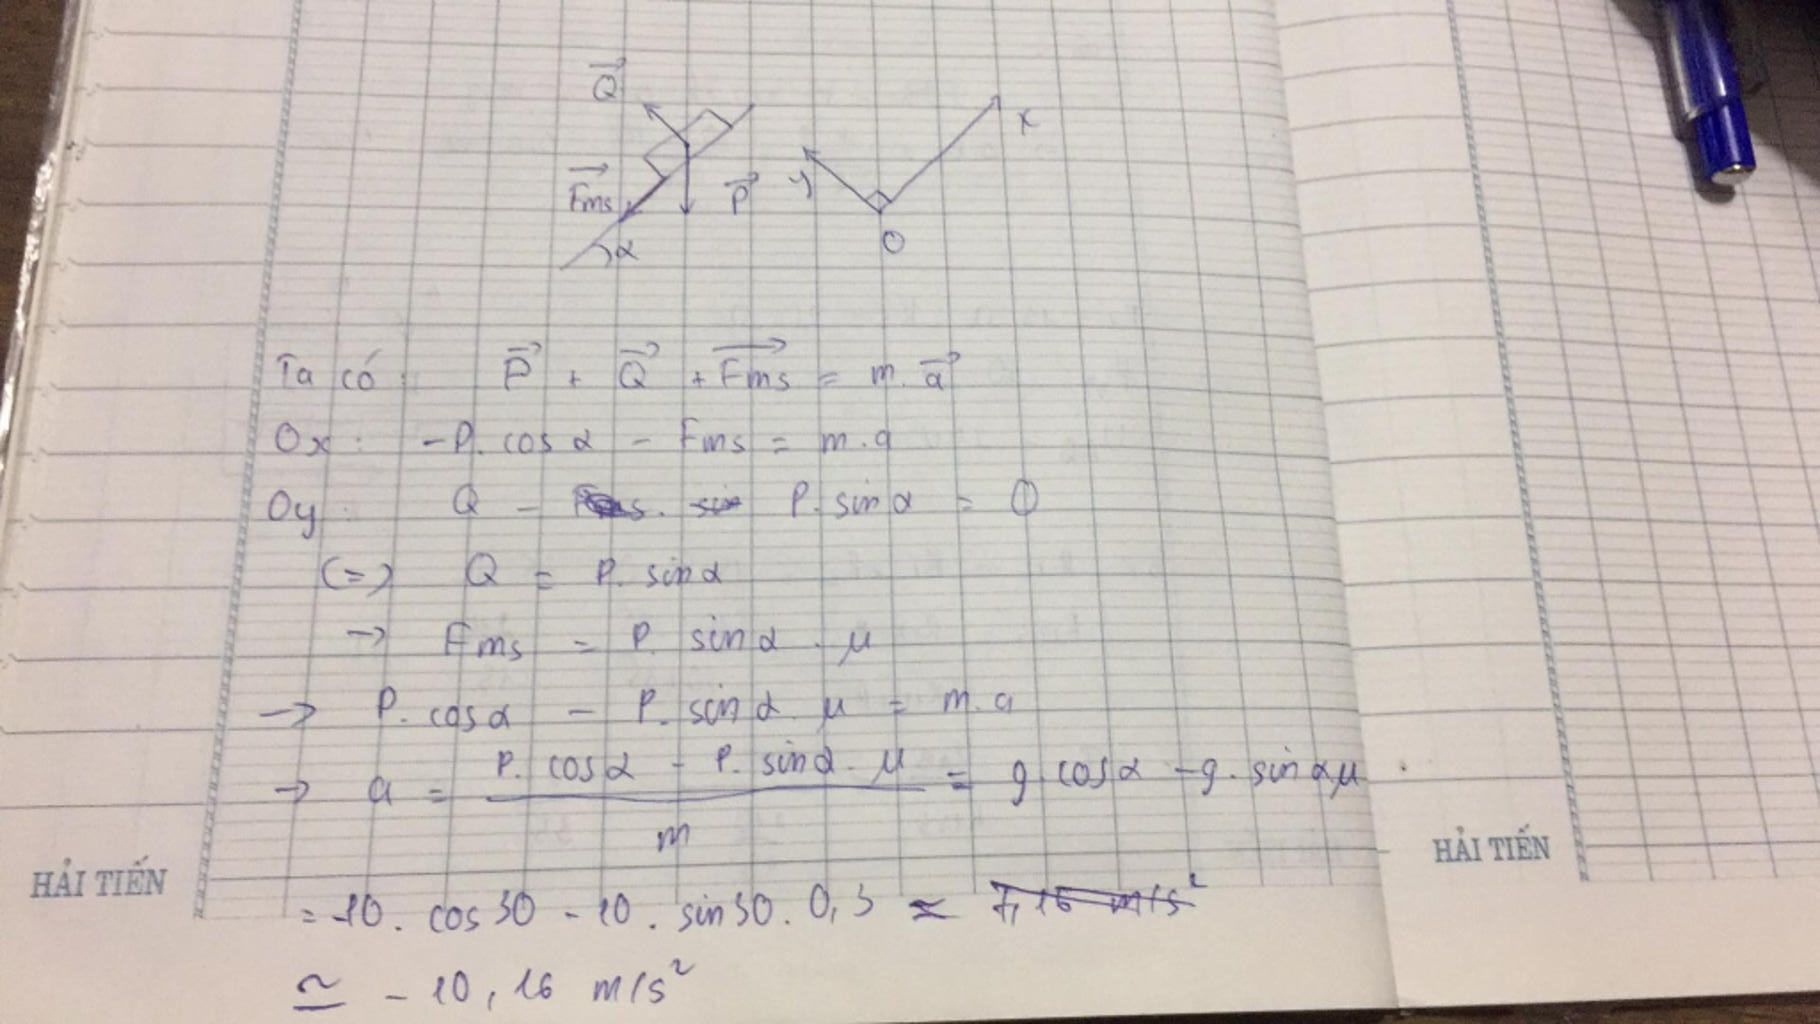 Q
Fms
P
α
x
y
O
Ta có: P + Q + Fms = m. a
Ox: -P. cos α - Fms = m.a
Oy: Q - P. sin α = 0
(=) Q = P. sin α
-> Fms = P. sin α. μ
-> P. cos α - P. sin α. μ = m.a
-> a = P. cos α - P. sin α. μ / m = g. cos α - g. sin α μ
HẢI TIẾN
HẢI TIẾN
= -10. cos 30 - 10. sin 30. 0,3 ≈ 7,16 m/s²
≃ - 10,16 m/s²